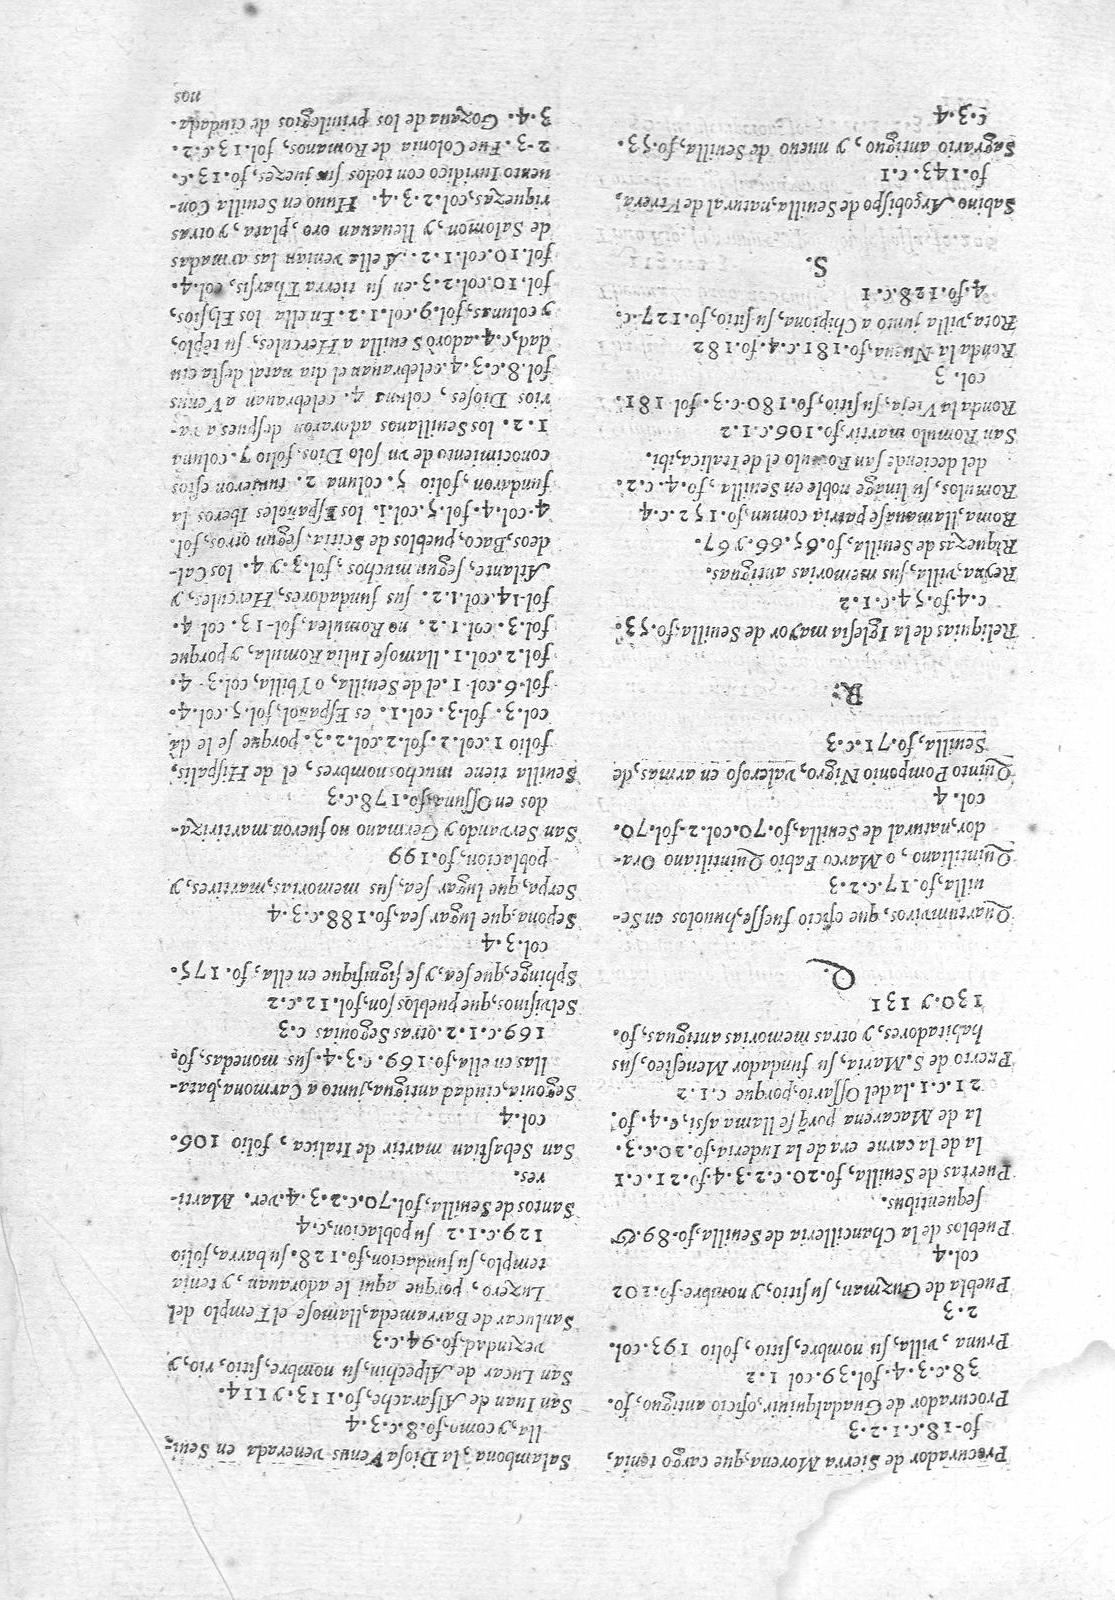 Procurador de Sierra Morena, que cargo tenia,
fo. 18. c. 1. 2. 3
Procurador de Guadalquiuir, oficio antiguo, fo.
38. c. 3. 4. fol. 39. col 1. 2
Pruna, villa, su nombre, sitio, folio 193. col.
2. 3
Puebla de Guzman, su sitio, y nombre. fo. 202
col. 4
Pueblos de la Chancilleria de Seuilla, fo. 89. &
sequentibus.
Puertas de Seuilla, fo. 20. c. 2. 3. 4. fo. 21. c. 1
la de la carne era de la Iuderia, fo. 20. c. 3.
la de Macarena porq̃ se llama assi, c. 4. fo.
21. c. 1. la del Ossario, porque c. 1. 2
Puerto de S. Maria, su fundador Menesteo, sus
habitadores, y otras memorias antiguas, fo.
130. y 131
Q.
Quartumviros, que oficio fuesse, huuolos en Se-
uilla, fo. 17. c. 2. 3
Quintiliano, o Marco Fabio Quintiliano Ora-
dor, natural de Seuilla, fo. 70. col. 2. fol. 70.
col. 4
Quinto Pomponio Nigro, valeroso en armas, de
Seuilla, fo. 71. c. 3
R.
Reliquias de la Iglesia mayor de Seuilla, fo. 53.
c. 4. fo. 54. c. 1. 2
Reyna, villa, sus memorias antiguas.
Riquezas de Seuilla, fo. 65. 66. y 67.
Roma, llamauase patria comun fo. 152. c. 4
Romulos, su linage noble en Seuilla, fo. 4. c. 2.
del deciende san Romulo el de Italica, ibi.
San Romulo martir, fo. 106. c. 1. 2
Ronda la Vieja, su sitio, fo. 180. c. 3. fol 181.
col. 3
Ronda la Nueua, fo. 181. c. 4. fo. 182
Rota, villa junto a Chipiona, su sitio, fo. 127. c.
4. fo. 128. c. 1
S.
Sabino Arçobispo de Seuilla, natural de Vtrera,
fo. 143. c. 1
Sagrario antiguo, y nueuo de Seuilla, fo. 53.
c. 3. 4
Salambona, la Diosa Venus venerada en Seui-
lla, y como, fo. 8. c. 3. 4
San Iuan de Alfarache, fo. 113. y 114.
San Lucar de Alpechin, su nombre, sitio, rio, y
vezindad, fo. 94. c. 3
Sanlucar de Barrameda, llamose el Templo del
Luzero, porque aqui le adorauan, y tenia
templo, su fundacion, fo. 128. su barra, folio
129. c. 1. 2 su poblacion, c. 4
Santos de Seuilla, fol. 70. c. 2. 3. 4. ver. Marti-
res.
San Sebastian martir de Italica, folio 106.
col. 4
Segouia, ciudad antigua, junto a Carmona, bata-
llas en ella, fo. 169. c. 3. 4. sus monedas, fo.
169. c. 1. 2. otras Segouias c. 3
Selbisinos, que pueblos son, fol. 12. c. 2
Sphinge, que sea, y se signifique en ella, fo. 175.
col. 3. 4
Sepona, que lugar sea, fo. 188. c. 3. 4
Serpa, que lugar sea, sus memorias, martires, y
poblacion, fo. 199
San Seruando y Germano no fueron martiriza-
dos en Ossuna, fo. 178. c. 3
Seuilla tiene muchos nombres, el de Hispalis,
folio 1. col. 2. fol. 2. col. 2. 3. porque se le dà
col. 3. fol. 3. col. 1. es Español, fol. 5. col. 4.
fol. 6. col 1. el de Seuilla, o Ybilla, col. 3. 4.
fol. 2. col. 1. llamose Iulia Romula, y porque
fol. 3. col. 1. 2. no Romulea, fol. 13. col 4.
fol. 14. col. 1. 2. sus fundadores, Hercules, y
Atlante, segun muchos, fol. 3. y 4. los Cal-
deos, Baco, pueblos de Scitia, segun otros, fol.
4. col. 4. fol. 5. col. 1. los Españoles Iberos la
fundaron, folio 5. coluna 2. tuuieron estos
conocimiento de vn solo Dios. folio 7. coluna
1. 2. los Seuillanos adoraron despues a va-
rios Dioses, coluna 4. celebrauan a Venus
fol. 8. c. 3. 4. celebrauan el dia natal desta ciu
dad, c. 4. adorò Seuilla a Hercules, su tẽplo,
y colunas, fol. 9. col. 1. 2. En ella los Elysios,
fol. 10. col. 2. 3. en su tierra Tharsis, col. 4.
fol. 10. col. 1. 2. A ella venian las armadas
de Salomon, y lleuauan oro, plata, y otras
riquezas, col. 2. 3. 4. Huuo en Seuilla Con-
uento Iuridico con todos sus juezes, fo. 13. c.
2. 3. Fue Colonia de Romanos, fol. 13. c. 2.
3. 4. Gozaua de los priuilegios de ciudada-
nos